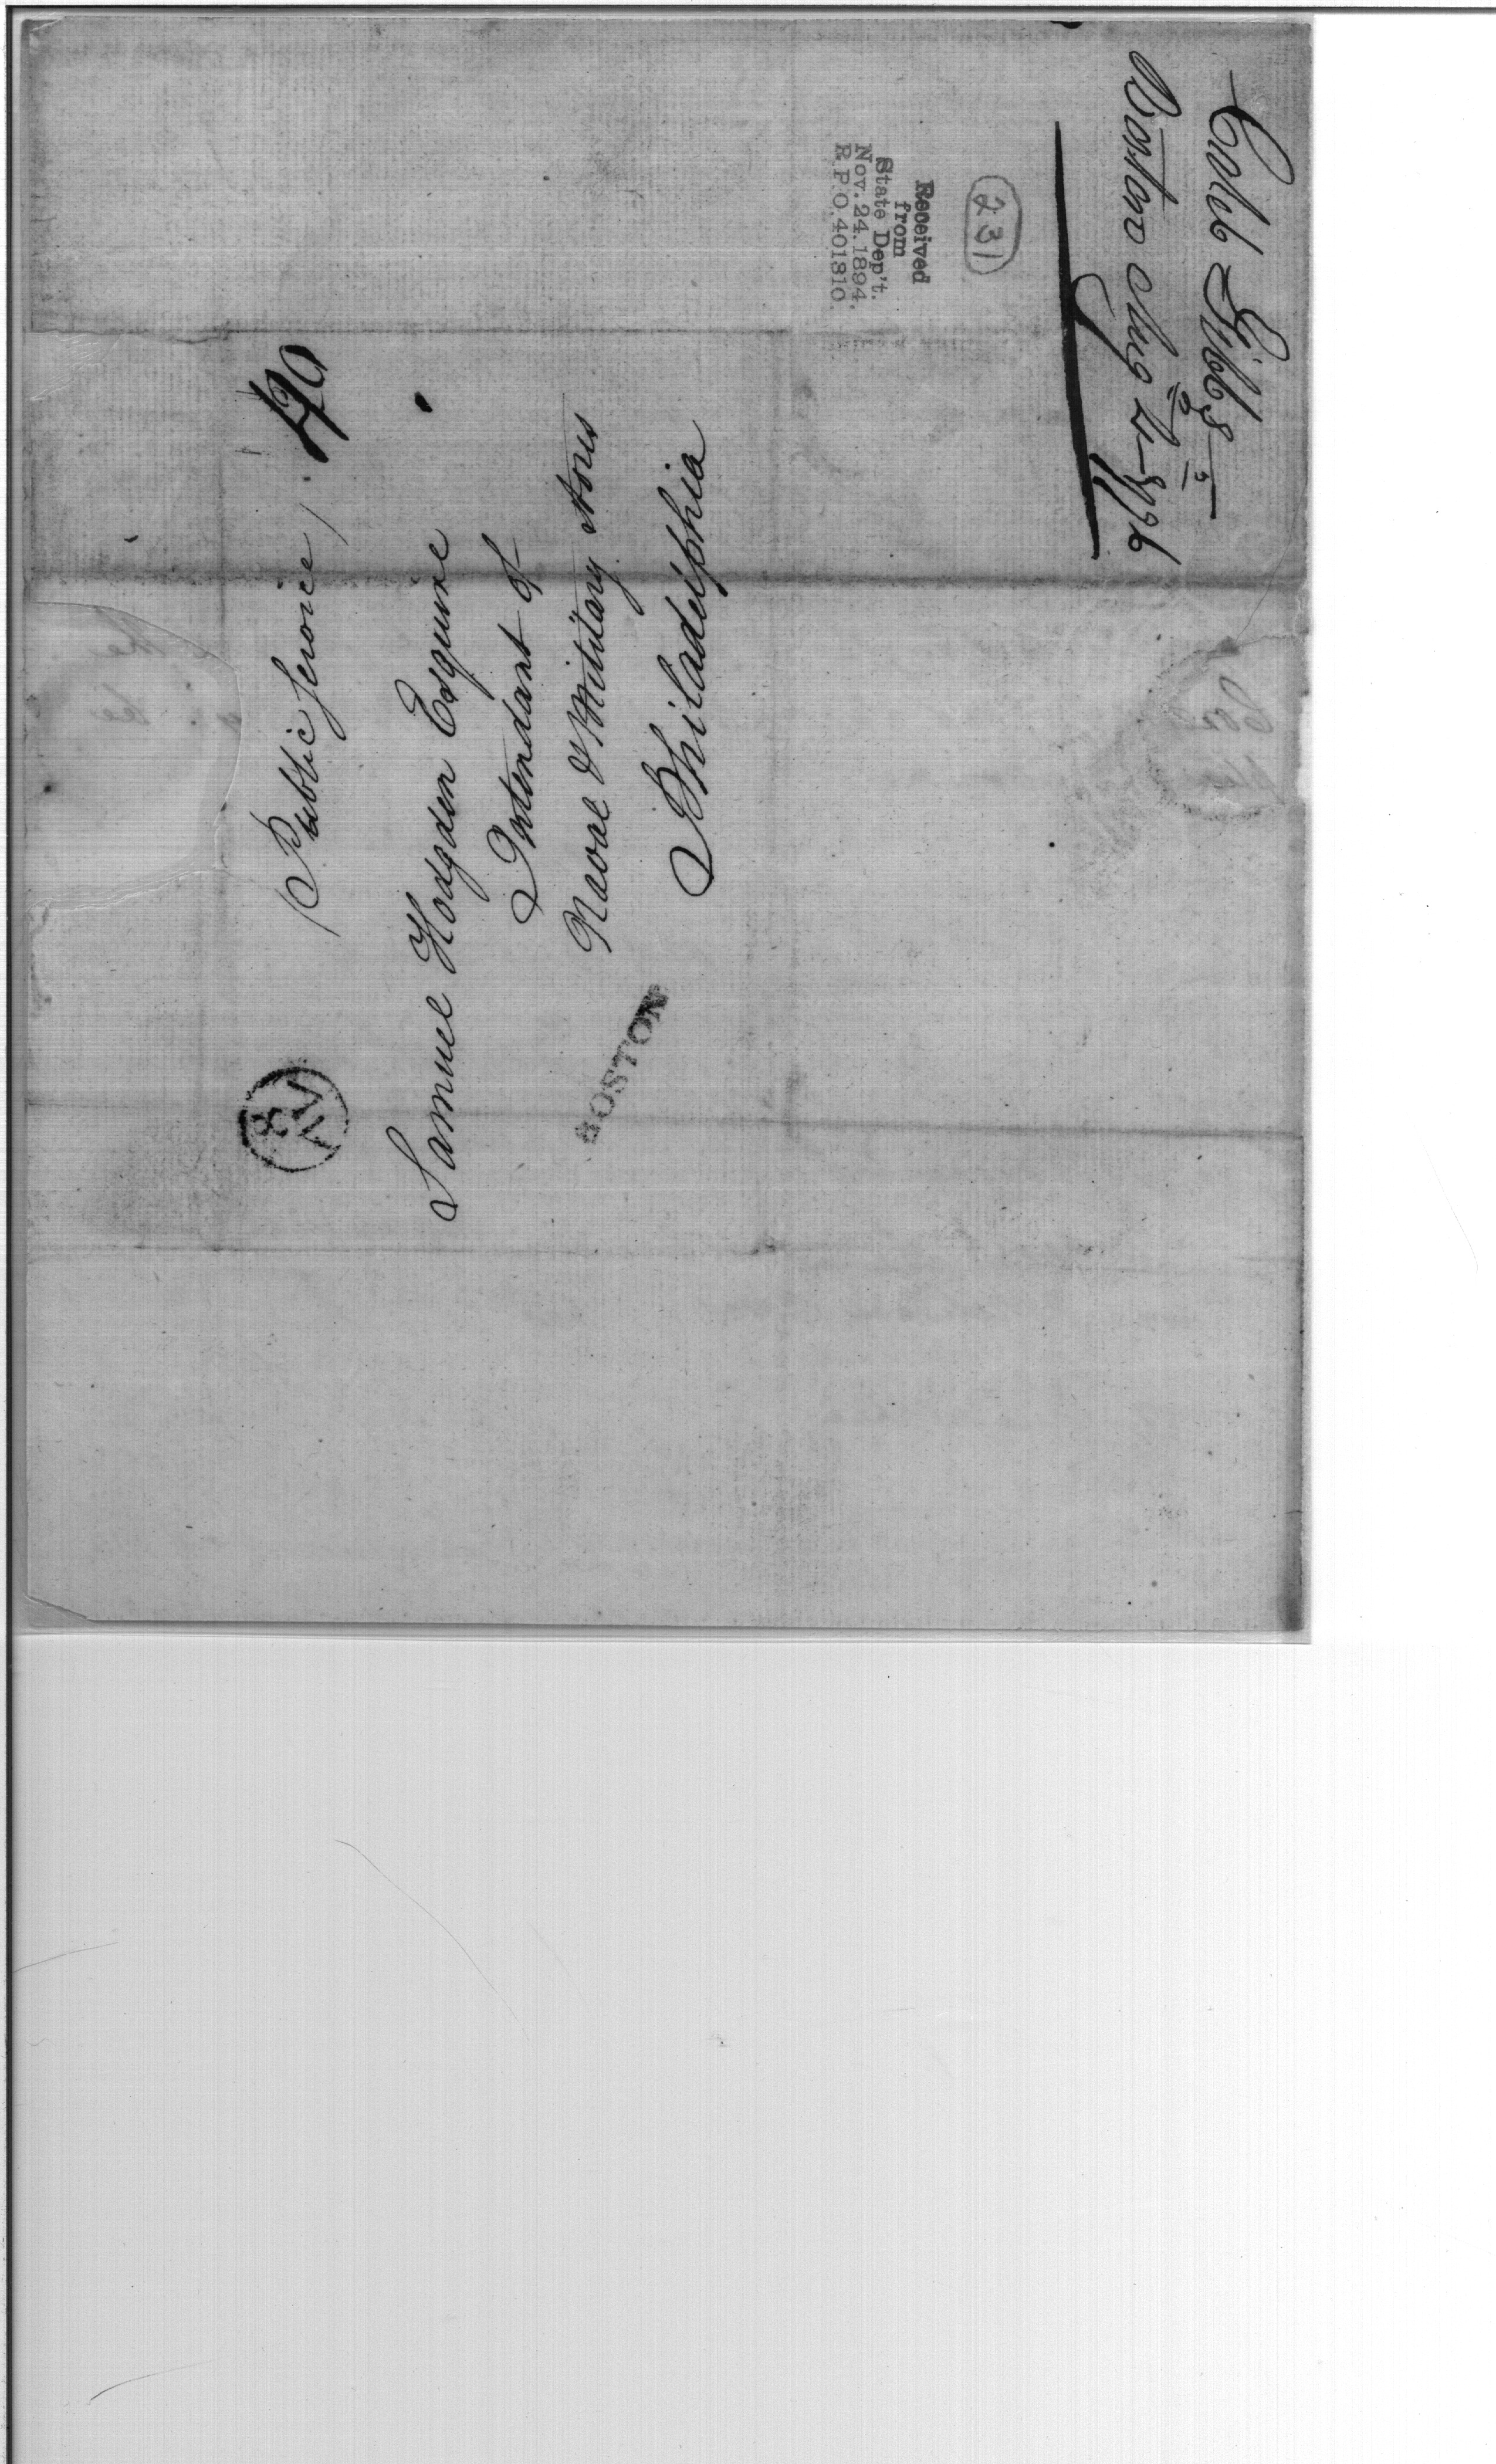 Caleb Gibbs
Boston Aug
231
Received
from
State Dep't.
Nov. 24. 1894.
R.P.O. 401810
Public Service
Samuel Hodgdon Esquire
Intendant of
Naval & Military Stores
Philadelphia
BOSTON